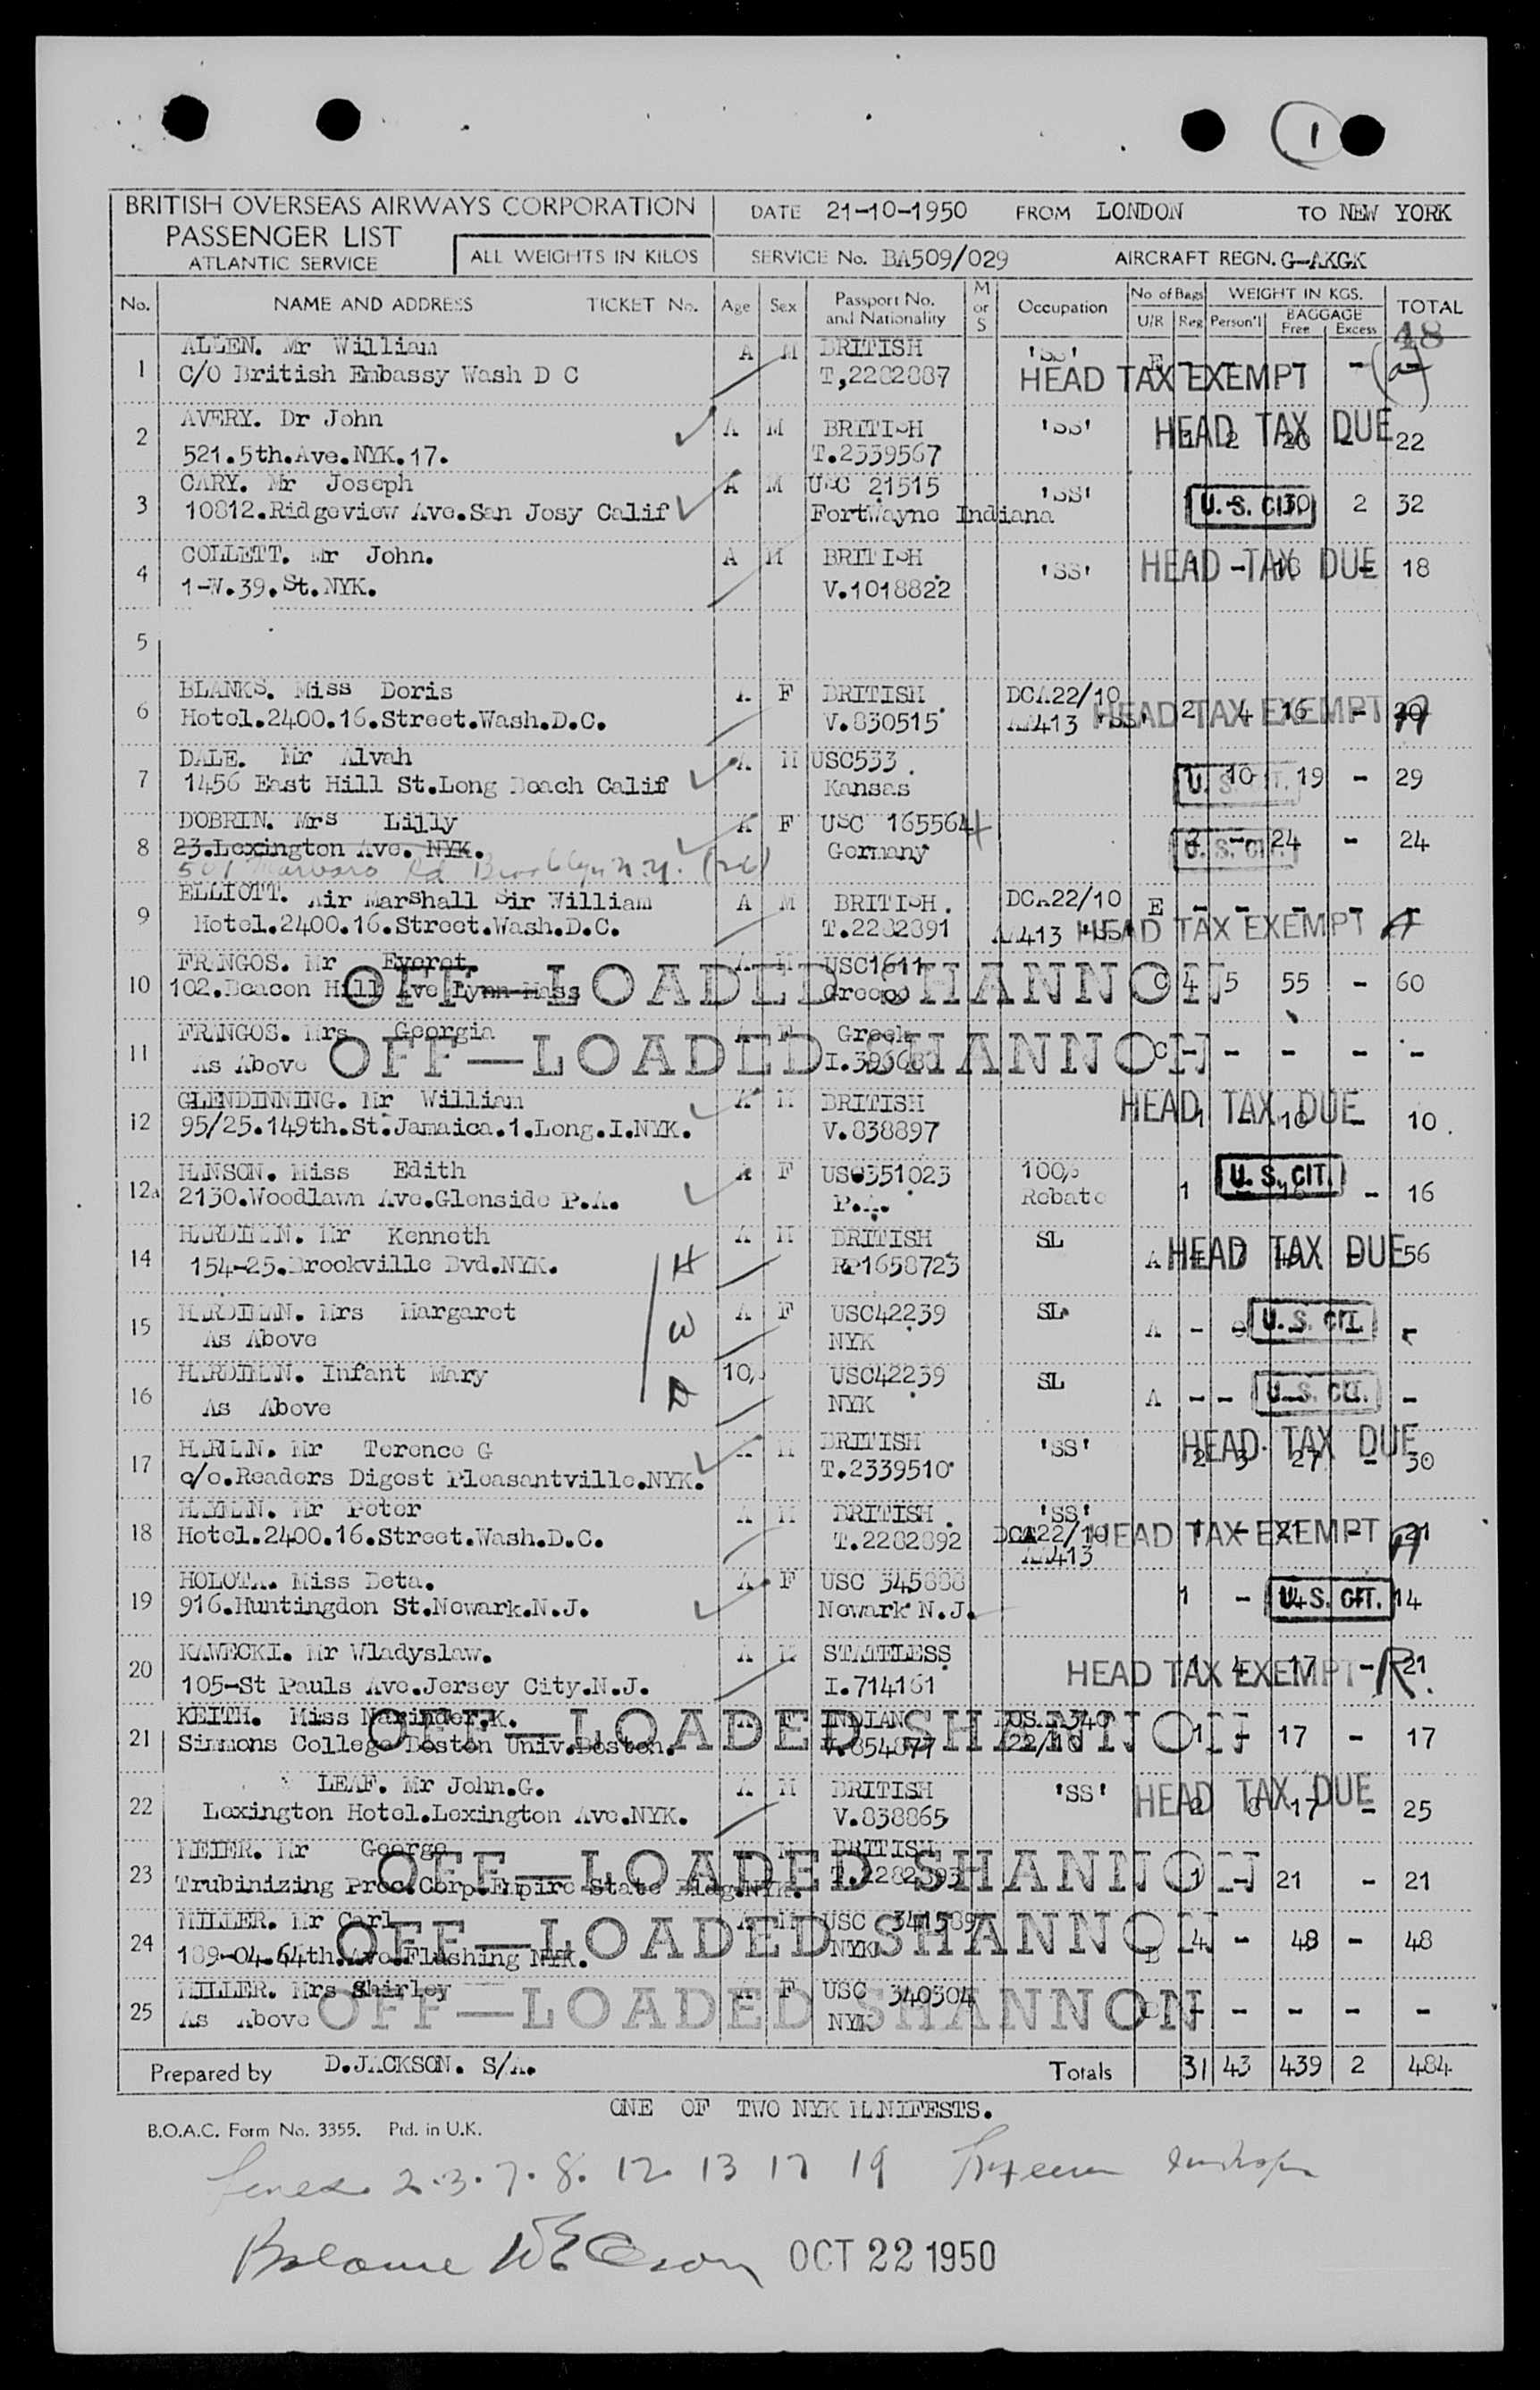 1
BRITISH OVERSEAS AIRWAYS CORPORATION
PASSENGER LIST
ATLANTIC SERVICE
ALL WEIGHTS IN KILOS
DATE 21-10-1950 FROM LONDON TO NEW YORK
SERVICE No. BA509/029 AIRCRAFT REGN. G-AKGK
No. NAME AND ADDRESS TICKET No. Age Sex Passport No. and Nationality M or S Occupation No of Bags U/R Reg WEIGHT IN KGS. Person'l BAGGAGE Free Excess TOTAL
48
1 ALLEN. Mr William A M BRITISH 'SS' E - - - - -
C/O British Embassy Wash D C T,2282887 HEAD TAX EXEMPT
2 AVERY. Dr John A M BRITISH 'SS' HEAD TAX DUE 1 2 20 - 22
521.5th.Ave.NYK.17. T.2339567
3 CARY. Mr Joseph A M USC 21515 'SS' 1 - 30 2 32
10812.Ridgeview Ave.San Josy Calif FortWayne Indiana U.S. CIT.
4 COLLETT. Mr John. A M BRITISH 'SS' HEAD TAX DUE 1 - 18 - 18
1-W.39.St.NYK. V.1018822
5
6 BLANKS. Miss Doris A F BRITISH DCA22/10 2 4 16 - 20
Hotel.2400.16.Street.Wash.D.C. V.830515 AA413 'SS' HEAD TAX EXEMPT
7 DALE. Mr Alvah A M USC533 1 10 19 - 29
1456 East Hill St.Long Beach Calif Kansas U.S. CIT.
8 DOBRIN. Mrs Lilly A F USC 165564 - 24 - 24
23.Lexington Ave. NYK. Germany U.S. CIT.
501 Marboro Rd Brooklyn N.Y.
9 ELLIOTT. Air Marshall Sir William A M BRITISH. DCA22/10 E - - - - -
Hotel.2400.16.Street.Wash.D.C. T.2282891 AA413 'SS' HEAD TAX EXEMPT
10 FRANGOS. Mr Everet. A M USC1611 C 4 5 55 - 60
102.Beacon Hill Ave Lynn Mass Greece OFF—LOADED SHANNON
11 FRANGOS. Mrs Georgia A F Greek C - - - - -
As Above OFF—LOADED SHANNON
12 GLENDINNING. Mr William A M BRITISH HEAD TAX DUE 1 - 10 - 10
95/25.149th.St.Jamaica.1.Long.I.NYK. V.838897
12a HANSON. Miss Edith A F USC351023 100% 1 - 16 - 16
2130.Woodlawn Ave.Glenside P.A. P.A. Rebate U.S. CIT.
14 HARDIMAN. Mr Kenneth H A M BRITISH SL A HEAD TAX DUE 56
154-25.Brookville Bvd.NYK. RP1658723
15 HARDIMAN. Mrs Margaret W A F USC42239 SL A - U.S. CIT. -
As Above NYK
16 HARDIMAN. Infant Mary D 10 USC42239 SL A - - U.S. CIT. -
As Above NYK
17 HARMAN. Mr Terence G A M BRITISH 'SS' HEAD TAX DUE 2 3 27 - 30
c/o.Readers Digest Pleasantville.NYK. T.2339510
18 HAYMAN. Mr Peter A M BRITISH. 'SS' 1 - 21 - 21
Hotel.2400.16.Street.Wash.D.C. T.2282892 DCA22/10 AA413 HEAD TAX EXEMPT
19 HOLOTA. Miss Beta. A F USC 345888 1 - 14 - 14
916.Huntingdon St.Newark.N.J. Newark N.J. U.S. CIT.
20 KAWECKI. Mr Wladyslaw. A M STATELESS 1 4 17 - 21
105-St Pauls Ave.Jersey City.N.J. I.714161 HEAD TAX EXEMPT R.
21 KEITH. Miss Narinder.K. A F INDIAN 1 - 17 - 17
Simmons College Boston Univ.Boston. V.854877 22/10 OFF—LOADED SHANNON
22 LEAF. Mr John.G. A M BRITISH 'SS' HEAD TAX DUE 2 8 17 - 25
Lexington Hotel.Lexington Ave.NYK. V.838865
23 MEIER. Mr George M BRITISH 1 - 21 - 21
Trubinizing Proc.Corp.Empire State Bldg.NYK. OFF—LOADED SHANNON
24 MILLER. Mr Carl A M USC 341589 4 - 48 - 48
189-04.64th.Ave.Flushing NYK. NYK OFF—LOADED SHANNON
25 MILLER. Mrs Shirley A F USC 340304 - - - - -
As Above NYK OFF—LOADED SHANNON
Prepared by D.JACKSON. S/A. Totals 31 43 439 2 484
ONE OF TWO NYK MANIFESTS.
B.O.A.C. Form No. 3355. Ptd. in U.K.
Lines 2.3.7.8. 12 13 17 19
OCT 22 1950